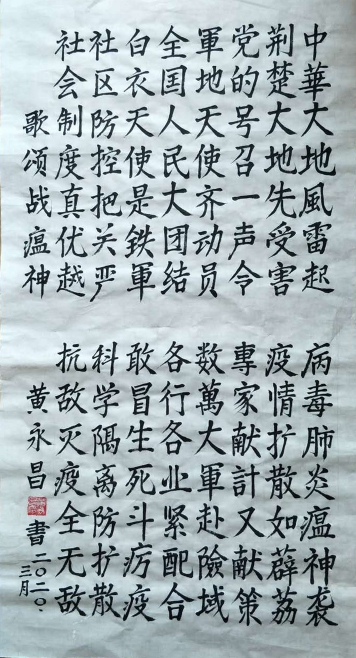 中華大地風雷起 病毒肺炎瘟神袭
荆楚大地先受害 疫情扩散如薜荔
党的号召一声令 專家献計又献策
軍地天使齐动员 数萬大軍赴險域
全囯人民大团结 各行各业紧配合
白衣天使是铁軍 敢冒生死斗疠疫
社区防控把关严 科学隔离防扩散
社会制度真优越 抗敌灭疫全无敌
歌颂战瘟神 黄永昌 書
二〇二〇.
三月